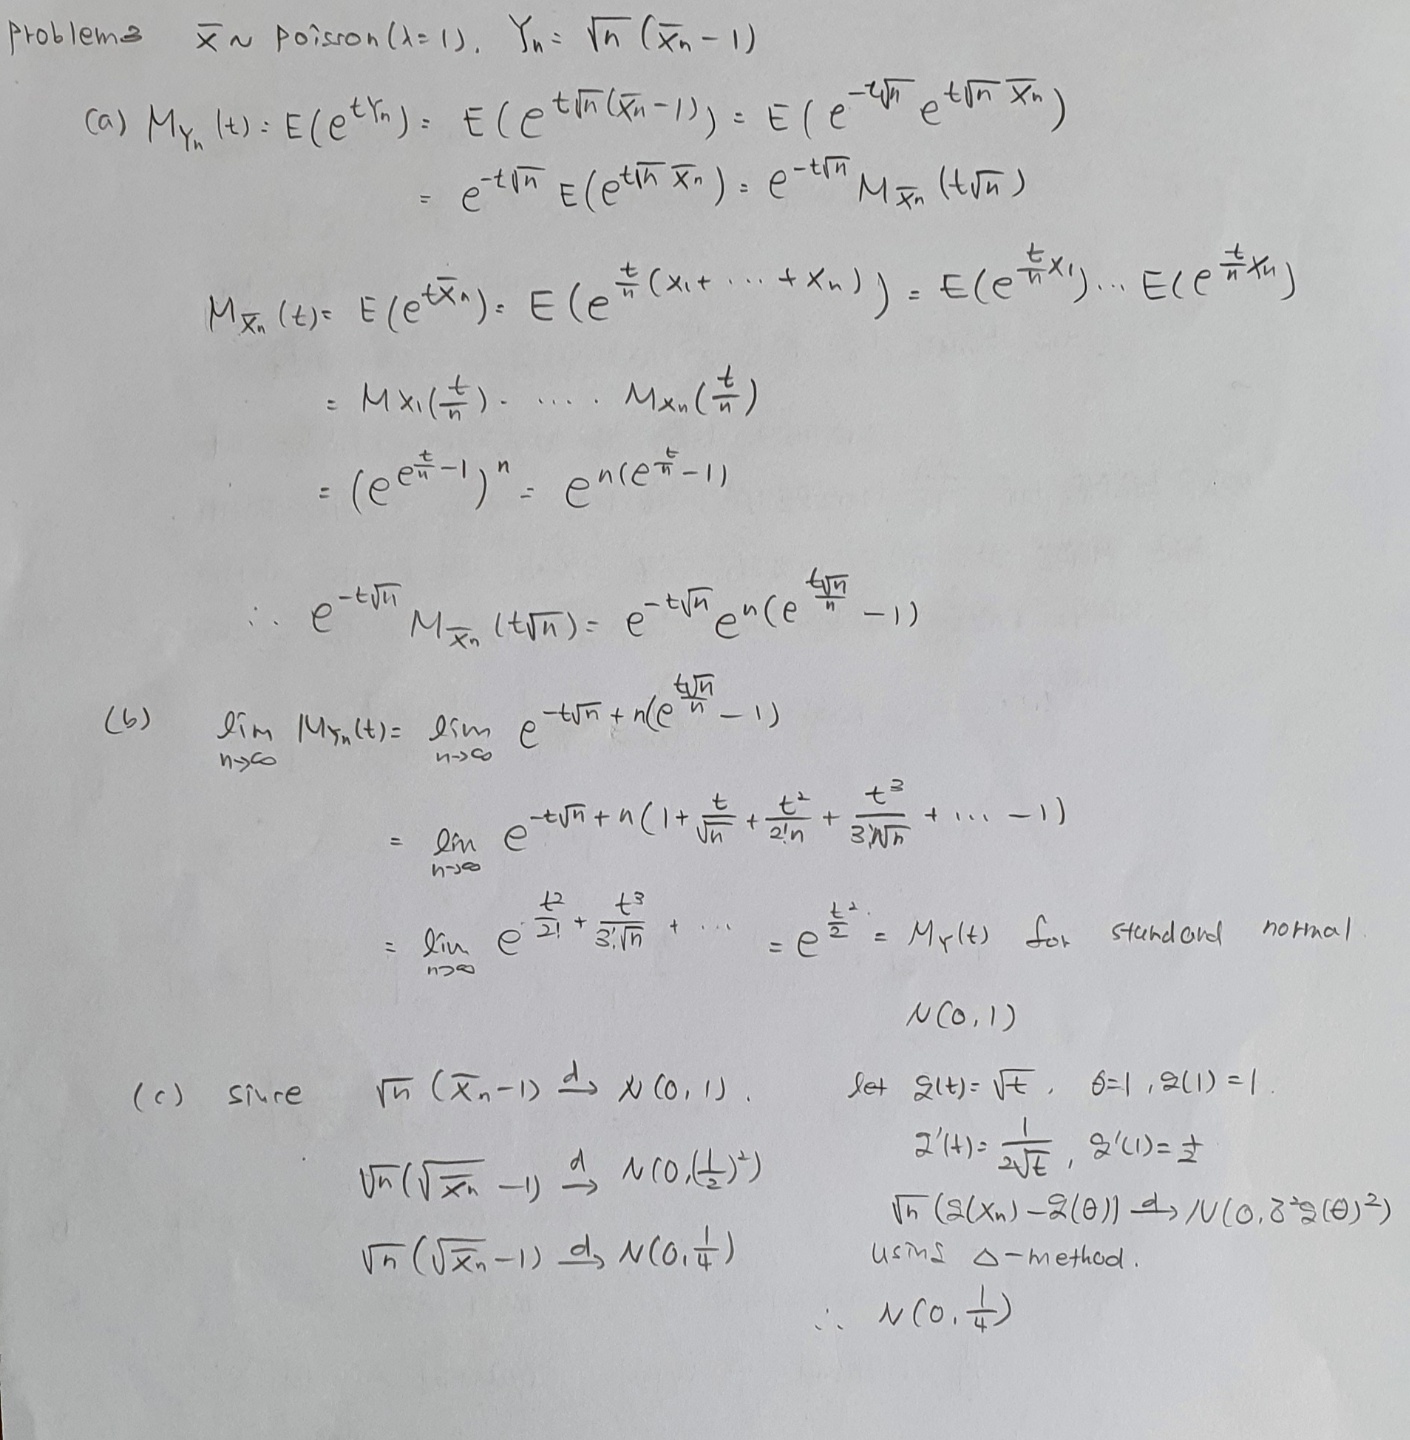 Problem3 X̄ ~ Poisson(λ=1). Yₙ = √n (X̄ₙ - 1)
(a) M_Yₙ(t) = E(e^{tYₙ}) = E(e^{t√n(X̄ₙ-1)}) = E(e^{-t√n} e^{t√n X̄ₙ})
= e^{-t√n} E(e^{t√n X̄ₙ}) = e^{-t√n} M_X̄ₙ(t√n)
M_X̄ₙ(t) = E(e^{tX̄ₙ}) = E(e^{t/n (X₁+ ... +Xₙ)}) = E(e^{t/n X₁}) ... E(e^{t/n Xₙ})
= M_X₁(t/n) · .... M_Xₙ(t/n)
= (e^{e^{t/n} - 1})^n = e^{n(e^{t/n} - 1)}
∴ e^{-t√n} M_X̄ₙ(t√n) = e^{-t√n} e^{n(e^{t√n/n} - 1)}
(b) lim_{n→∞} M_Yₙ(t) = lim_{n→∞} e^{-t√n + n(e^{t√n/n} - 1)}
= lim_{n→∞} e^{-t√n + n(1 + t/√n + t²/2!n + t³/3!n√n + ... - 1)}
= lim_{n→∞} e^{t²/2! + t³/3!√n + ...} = e^{t²/2} = M_Y(t) for standard normal.
N(0,1)
(c) since √n (X̄ₙ - 1) →d N(0,1).
√n(√X̄ₙ - 1) →d N(0,(1/2)²)
√n(√X̄ₙ - 1) →d N(0,1/4)
let g(t) = √t, θ=1, g(1) = 1.
g'(t) = 1/2√t, g'(1) = 1/2
√n (g(Xₙ) - g(θ)) →d N(0, δ²g(θ)²)
using Δ-method.
∴ N(0,1/4)